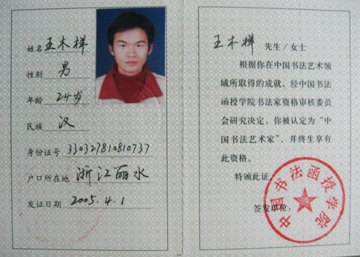 姓名 王木样
性别 男
年龄 24岁
民族 汉
身份证号 330327810810737
户口所在地 浙江丽水
发证日期 2005.4.1
王木样 先生/女士
根据你在中国书法艺术领
域所取得的成就，经中国书法
函授学院书法家资格审核委员
会研究决定，你被认定为“中
国书法艺术家”，并终生享有
此资格。
特颁此证。
签发单位：
中国书法函授学院